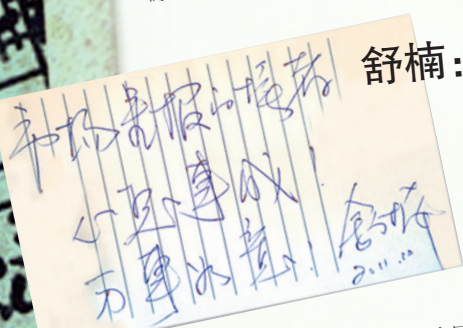 舒楠：
市场星报的读者
心想事成！
万事如意！
舒楠
2011.10